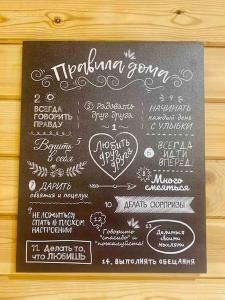 Правила дома
2
ВСЕГДА
ГОВОРИТЬ
ПРАВДУ
3 Радовать
друг друга
НАЧИНАТЬ
каждый день
С УЛЫБКИ
1
ЛЮБИТЬ
друг
друга
Верить
в себя
6 ВСЕГДА
ИДТИ
ВПЕРЕД
7 ДАРИТЬ
объятия и поцелуи
Много
смеяться
10 ДЕЛАТЬ СЮРПРИЗЫ
9 НЕ ЛОЖИТЬСЯ
СПАТЬ В ПЛОХОМ
НАСТРОЕНИИ
12
Говорить
"спасибо" и
"пожалуйста"
13
Делиться
своими
мыслями
11. Делать то,
что ЛЮБИШЬ
14. ВЫПОЛНЯТЬ ОБЕЩАНИЯ